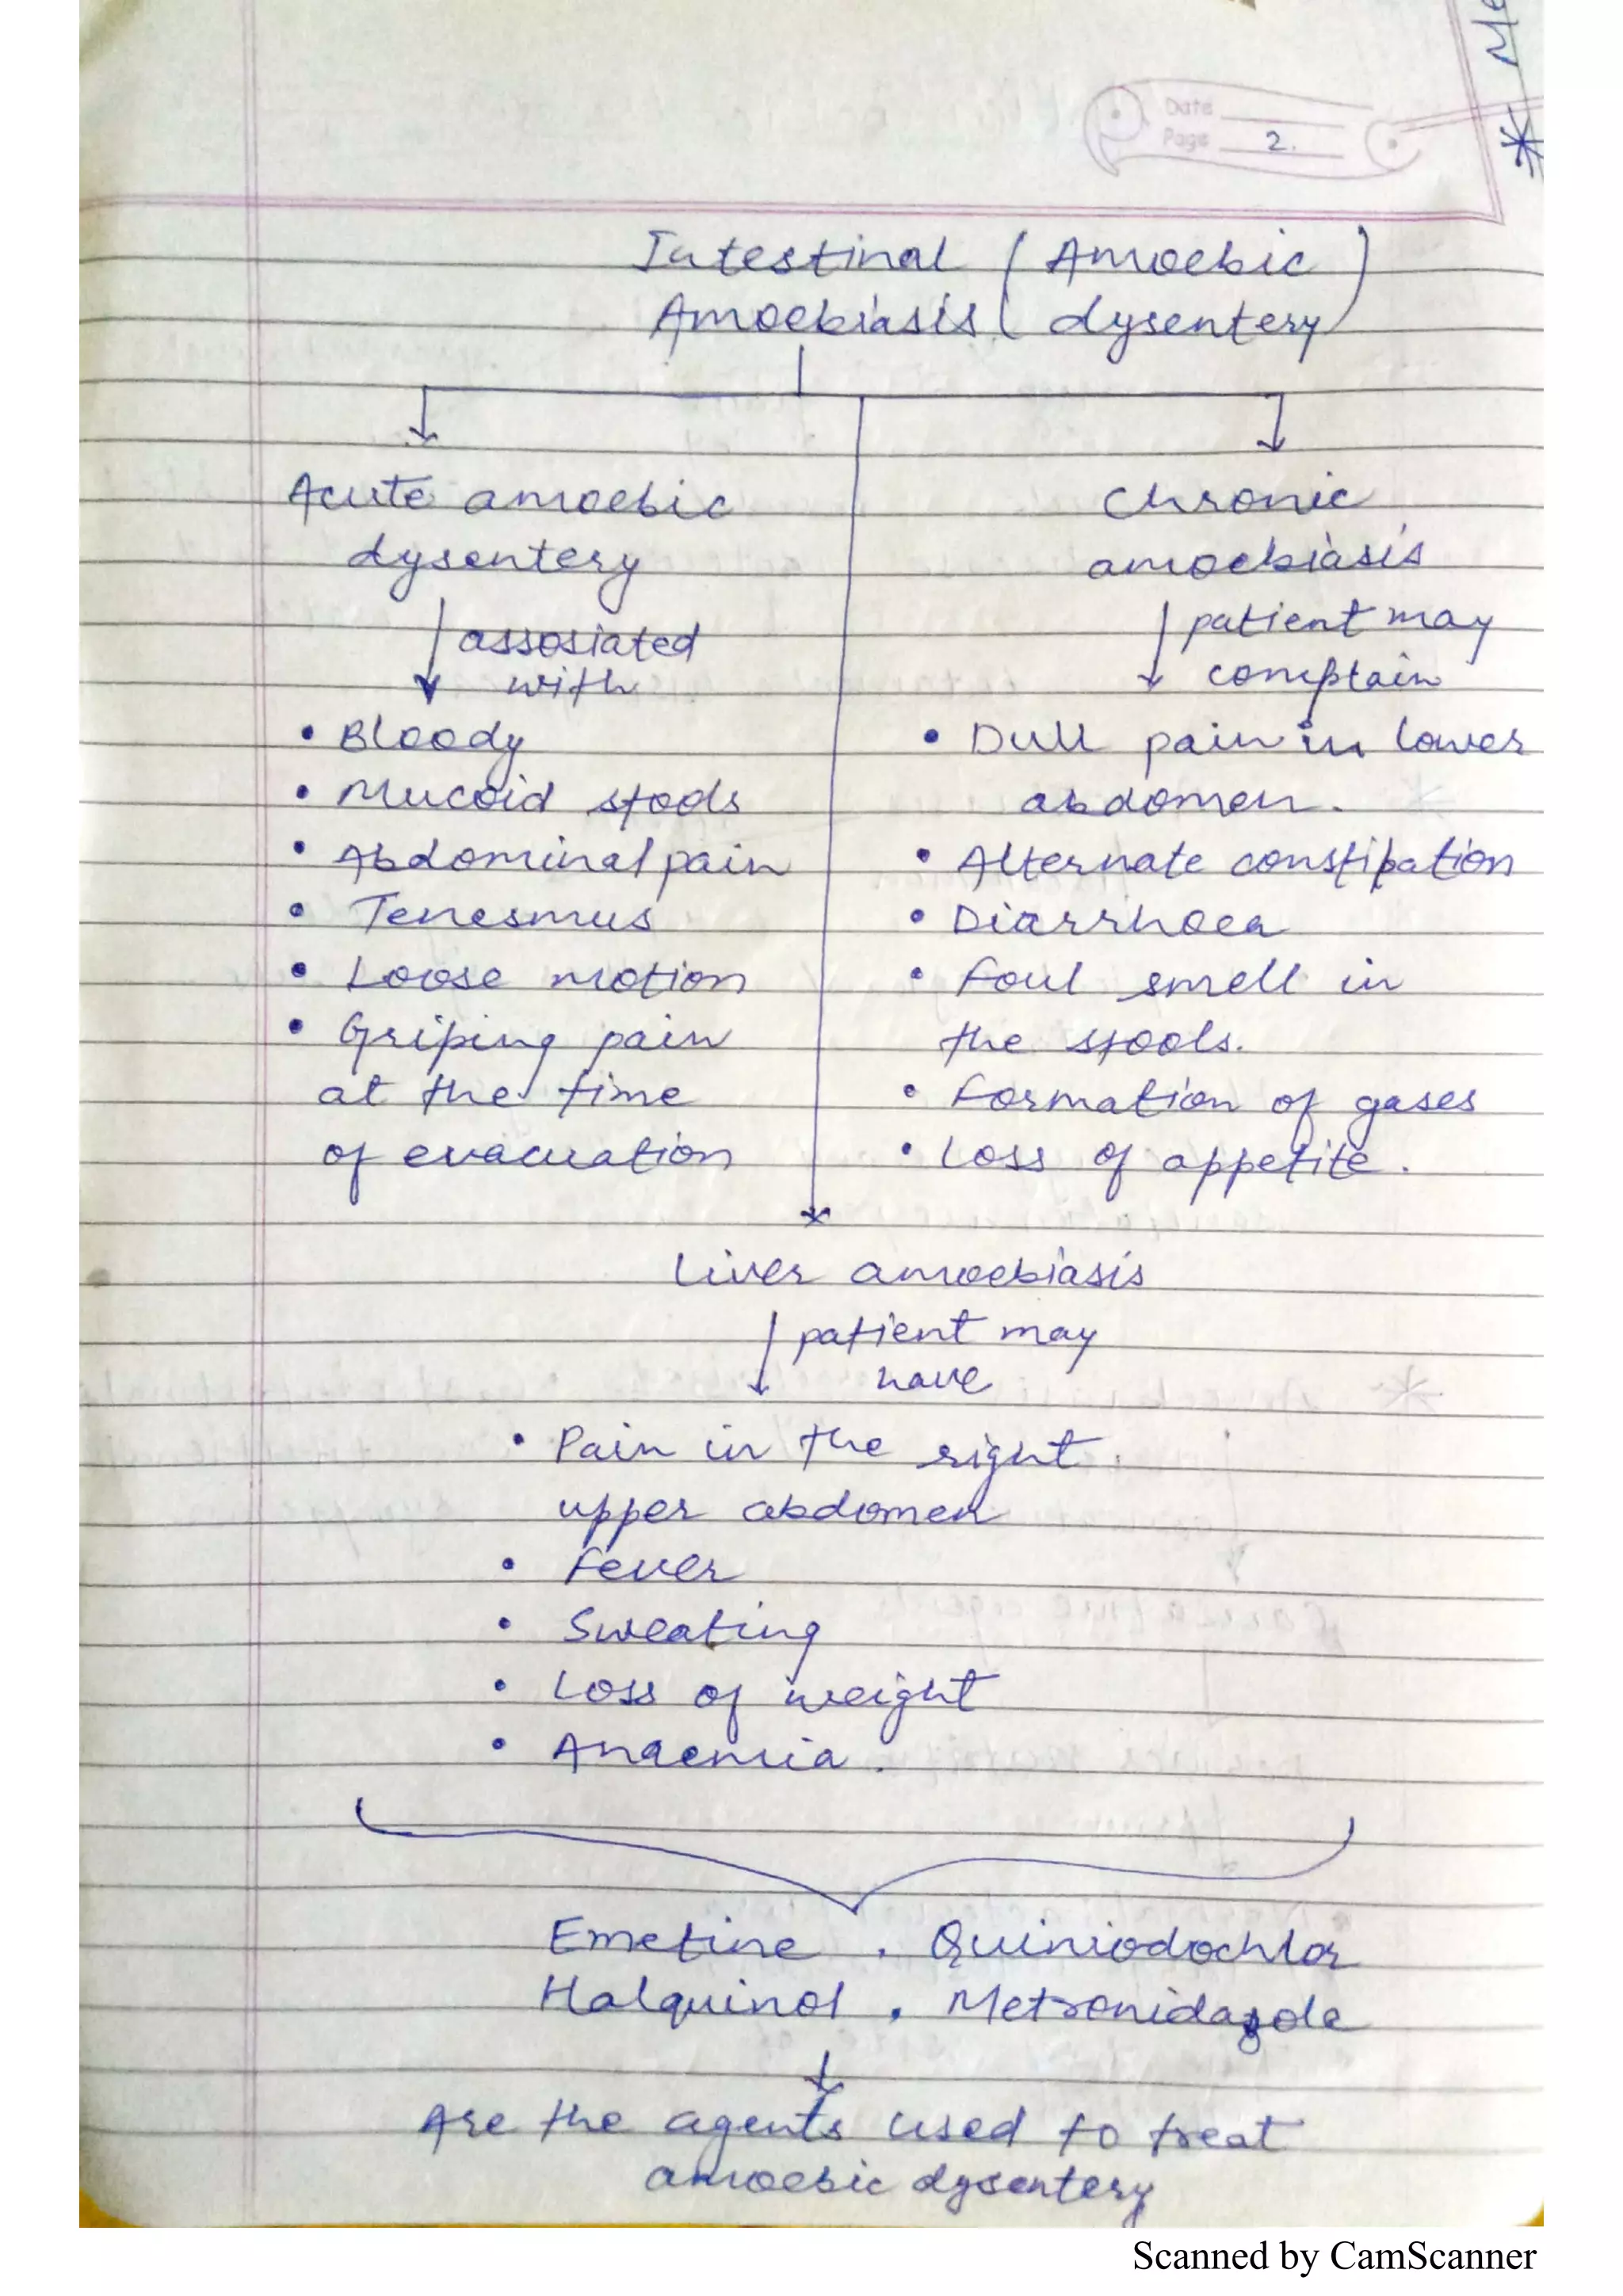 * Me
Date
Page 2.
Intestinal (Amoebic
Amoebiasis dysentery)
Acute amoebic
dysentery
assosiated
with
• Bloody
• Mucoid stools
• Abdominal pain
• Tenesmus
• Loose motion
• Griping pain
at the time
of evacuation
Chronic
amoebiasis
patient may
complain
• Dull pain in lower
abdomen.
• Alternate constipation
• Diarrhoea
• Foul smell in
the stools.
• Formation of gases
• Loss of appetite.
Liver amoebiasis
patient may
have
• Pain in the right
upper abdomen
• Fever
• Sweating
• Loss of weight
• Anaemia.
Emetine , Quiniodochlor
Halquinol , Metronidazole
Are the agents used to treat
amoebic dysentery
Scanned by CamScanner